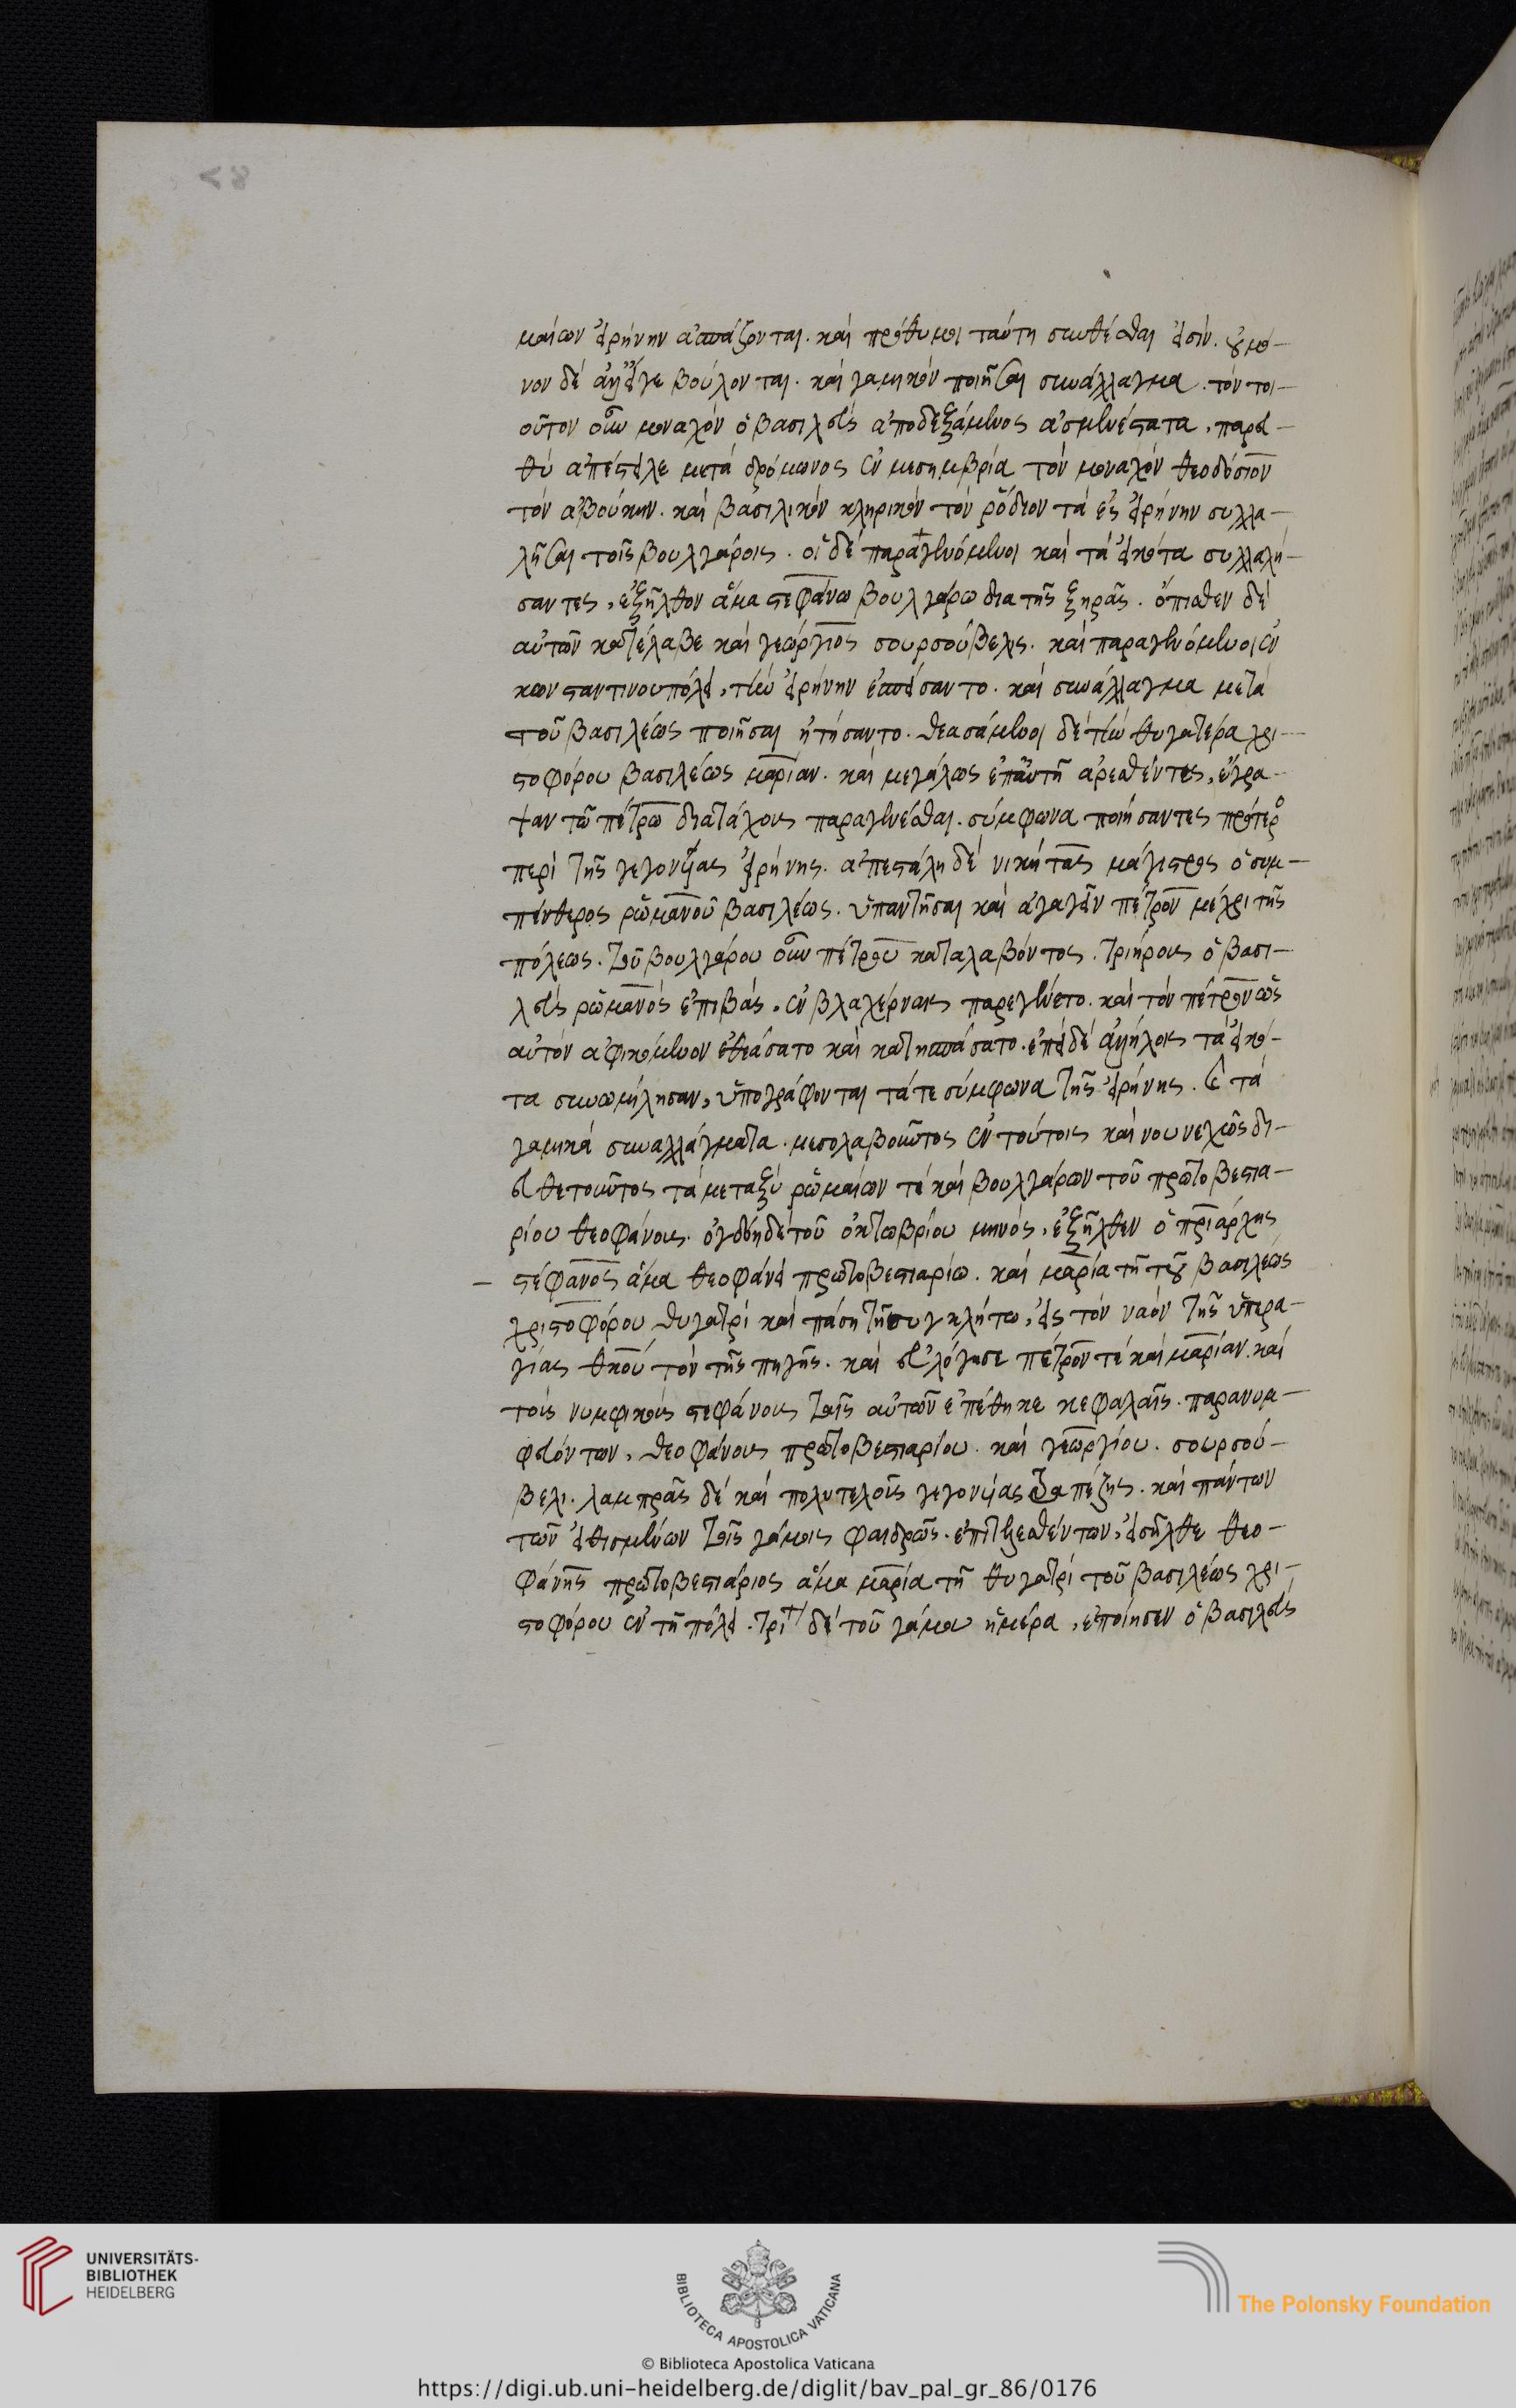 μαίων εἰρήνην ἀσπάζονται. καὶ πρόθυμοι ταύτη συνθέσθαι εἰσίν. οὐ μό-
νον δὲ ἀλλείγε βούλονται. καὶ γαμικὸν ποιῆσαι συνάλλαγμα. τὸν τοι-
οῦτον οὖν μοναχὸν ὁ βασιλεὺς ἀποδεξάμενος ἀσμενέστατα, παρευ-
θὺ ἀπέστειλε μετὰ δρόμωνος ἐν μεσημβρία τὸν μοναχὸν θεοδόσιον
τὸν ἀβούκην. καὶ βασιλικὸν κληρικὸν τὸν ῥόδιον τὰ εἰς εἰρήνην συλλα-
λῆσαι τοῖς βουλγάροις. οἱ δὲ παραγενόμενοι καὶ τὰ εἰκότα συλλαλή-
σαντες, ἐξῆλθον ἅμα στεφάνω βουλγάρω δια τῆς ξηρᾶς. ὄπισθεν δὲ
αὐτῶν κατέλαβε καὶ γεώργιος σουρσούβελις. καὶ παραγενόμενοι ἐν
κωνσταντινουπόλει, τὴν εἰρήνην ἐσπείσαντο. καὶ συνάλλαγμα μετὰ
τοῦ βασιλέως ποιῆσαι ἠτήσαντο. θεασάμενοι δὲ τὴν θυγατέρα χρι-
στοφόρου βασιλέως μαρίαν. καὶ μεγάλως ἐπαυτῆ ἀρεσθέντες, ἔγρα-
ψαν τῶ πέτρω διατάχους παραγενέσθαι. σύμφωνα ποιήσαντες πρότερον
περὶ τῆς γεγονυίας εἰρήνης. ἀπεστάλη δὲ νικήτας μάγιστρος ὁ συμ-
πένθερος ῥωμανοῦ βασιλέως. ὑπαντῆσαι καὶ ἀγαγεῖν πέτρον μέχρι τῆς
πόλεως. τοῦ βουλγάρου οὖν πέτρου καταλαβόντος. τριήρους ὁ βασι-
λεὺς ῥωμανὸς ἐπιβάς, ἐν βλαχέρναις παρεγένετο. καὶ τὸν πέτρον ὡς
αὐτὸν ἀφικόμενον ἐθεάσατο καὶ κατησπάσατο. ἐπεὶ δὲ ἀλλήλοις τὰ εἰκό-
τα συνωμίλησαν, ὑπογράφονται τά τε σύμφωνα τῆς εἰρήνης. καὶ τὰ
γαμικὰ συναλλάγματα. μεσολαβοῦντος ἐν τούτοις καὶ νουνεχῶς δι-
ευθετοῦντος τὰ μεταξὺ ῥωμαίων τὲ καὶ βουλγάρων τοῦ πρωτοβεστια-
ρίου θεοφάνους. ὀγδόη δὲ τοῦ ὀκτωβρίου μηνός, ἐξῆλθεν ὁ πριάρχης
στέφανος ἅμα θεοφάνει πρωτοβεστιαρίω. καὶ μαρία τῆ τοῦ βασιλέως
χριστοφόρου θυγατρὶ καὶ πάση τῆ συγκλήτω, εἰς τὸν ναὸν τῆς ὑπερα-
γίας θκου τὸν τῆς πηγῆς. καὶ εὐλόγησε πέτρον τὲ καὶ μαρίαν. καὶ
τοὺς νυμφικοὺς στεφάνους ταῖς αὐτῶν ἐπέθηκε κεφαλαῖς. παρανυμ-
φευόντων, θεοφάνους πρωτοβεστιαρίου. καὶ γεωργίου. σουρσού-
βελι. λαμπρᾶς δὲ καὶ πολυτελοῦς γεγονυίας τραπέζης. καὶ πάντων
τῶν εἰθισμένων τοῖς γάμοις φαιδρῶς. ἐπιτελεσθέντων, εἰσῆλθε θεο-
φάνης πρωτοβεστιάριος ἅμα μαρία τῆ θυγατρὶ τοῦ βασιλέως χρι-
στοφόρου ἐν τῆ πόλει. τρίτη δὲ τοῦ γάμου ἡμέρα, ἐποίησεν ὁ βασιλεὺς
UNIVERSITÄTS-
BIBLIOTHEK
HEIDELBERG
BIBLIOTECA APOSTOLICA VATICANA
The Polonsky Foundation
© Biblioteca Apostolica Vaticana
https://digi.ub.uni-heidelberg.de/diglit/bav_pal_gr_86/0176